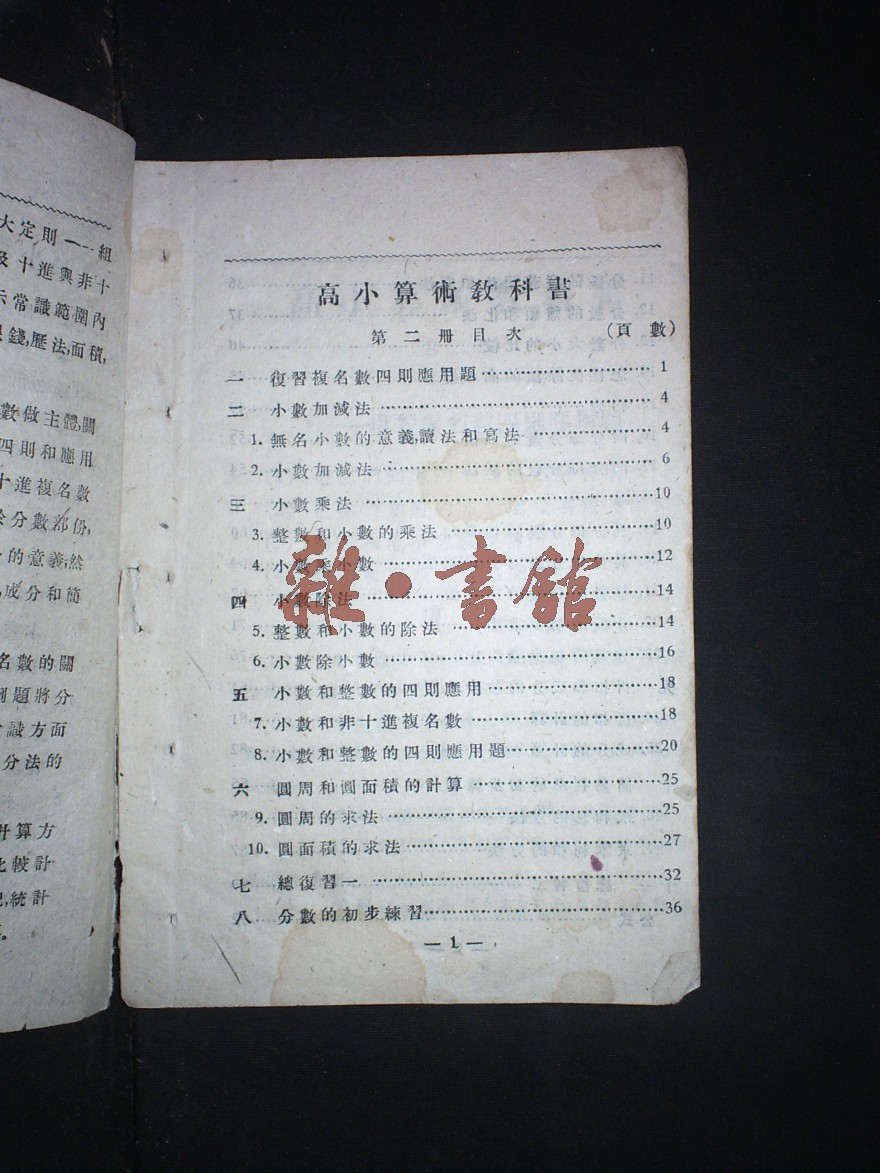 大定則一組
及十進與非十
示常識範圍內
錢,歷法,面積,
數做主體,關
四則和應用
十進複名數
於分數部份,
的意義,然
成分和簡
名數的關
例題將分
識方面
分法的
計算方
比較計
統計
高小算術教科書
第二冊目次 (頁數)
一 復習複名數四則應用題 1
二 小數加減法 4
1. 無名小數的意義,讀法和寫法 4
2. 小數加減法 6
三 小數乘法 10
3. 整數和小數的乘法 10
4. 小數乘小數 12
四 小數除法 14
5. 整數和小數的除法 14
6. 小數除小數 16
五 小數和整數的四則應用 18
7. 小數和非十進複名數 18
8. 小數和整數的四則應用題 20
六 圓周和圓面積的計算 25
9. 圓周的求法 25
10. 圓面積的求法 27
七 總復習一 32
八 分數的初步練習 36
— 1 —
雜·書館